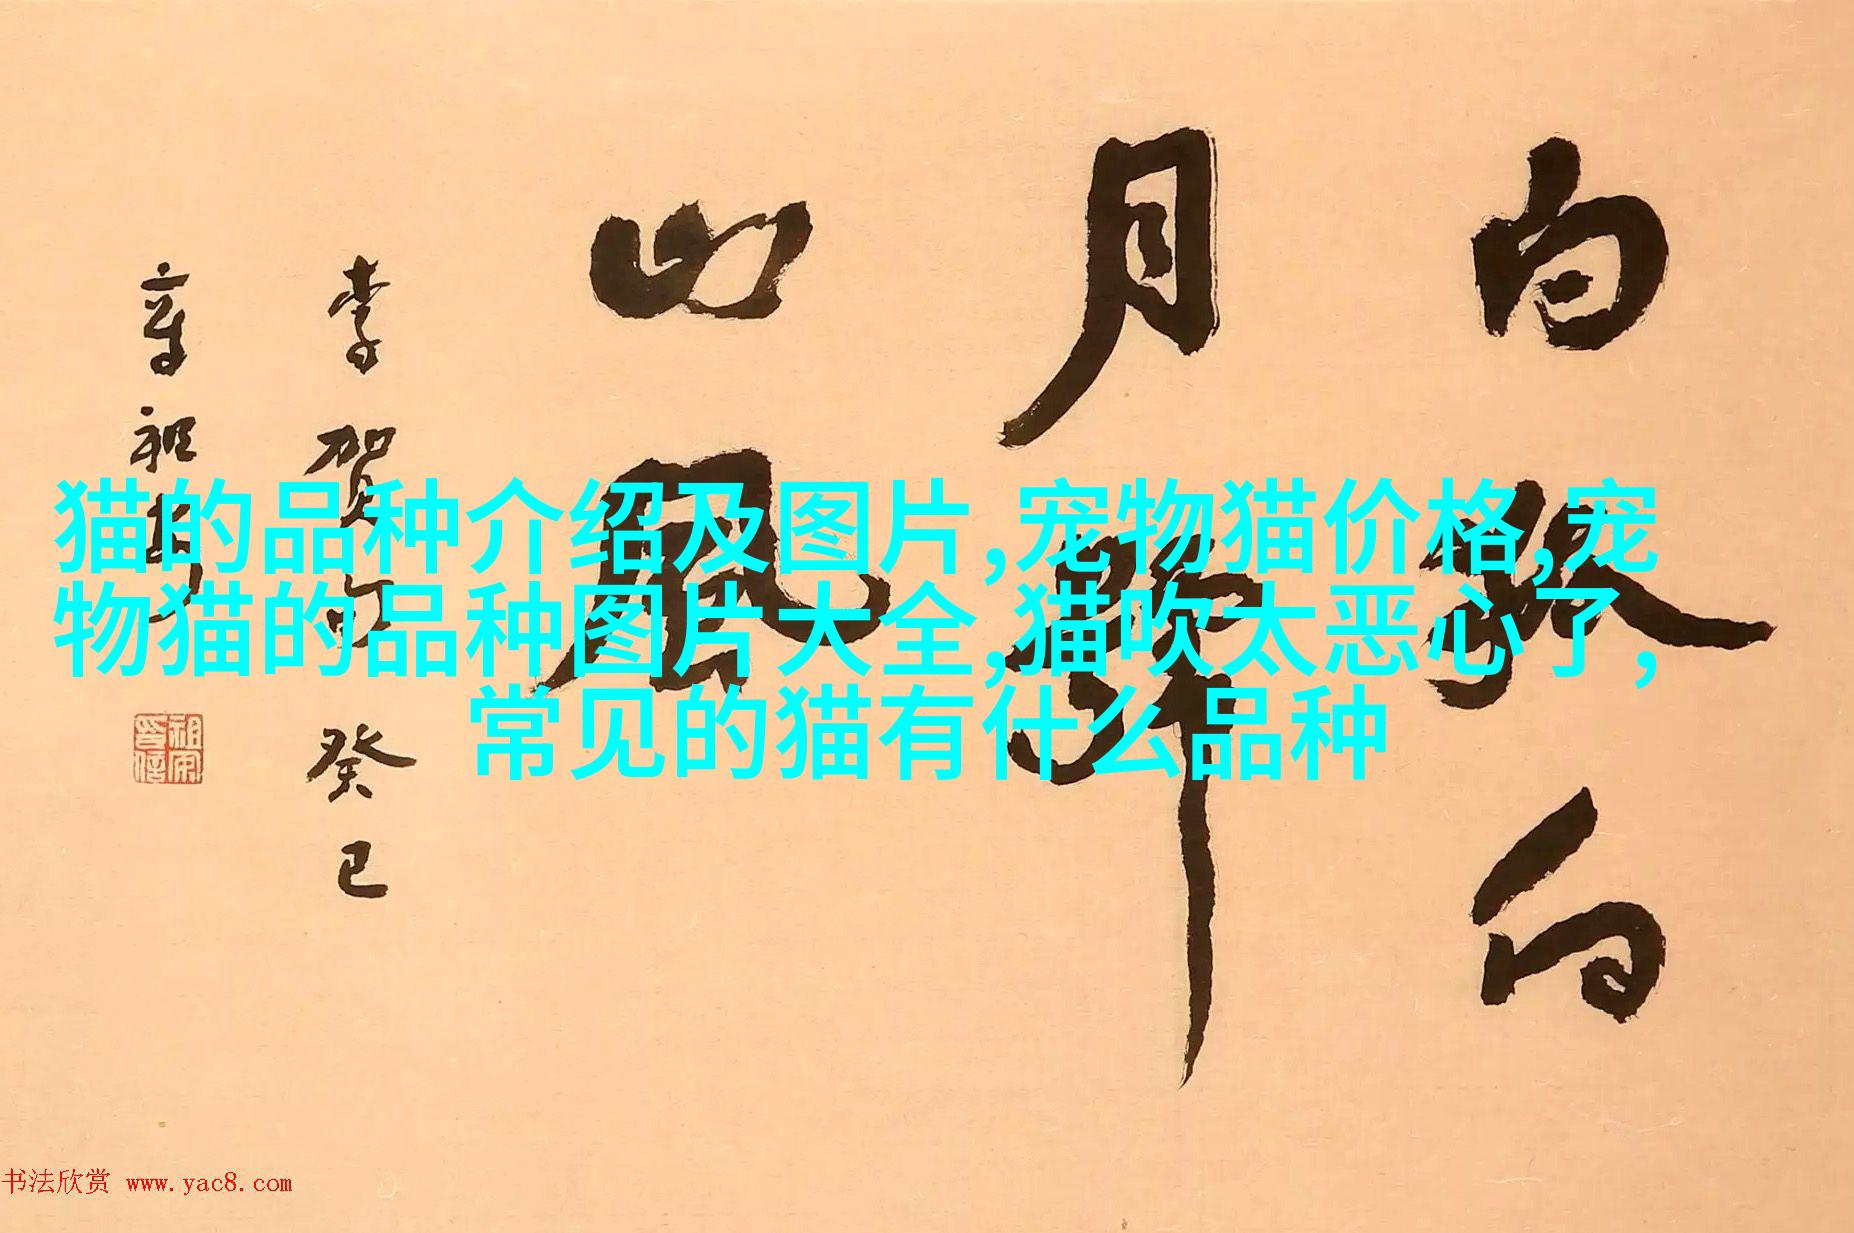 白狐向
月號
山風
李賀句 癸巳
章祖安
猫的品种介绍及图片,宠物猫价格,宠
物猫的品种图片大全,猫吹太恶心了,
常见的猫有什么品种
书法欣赏 www.yac8.com